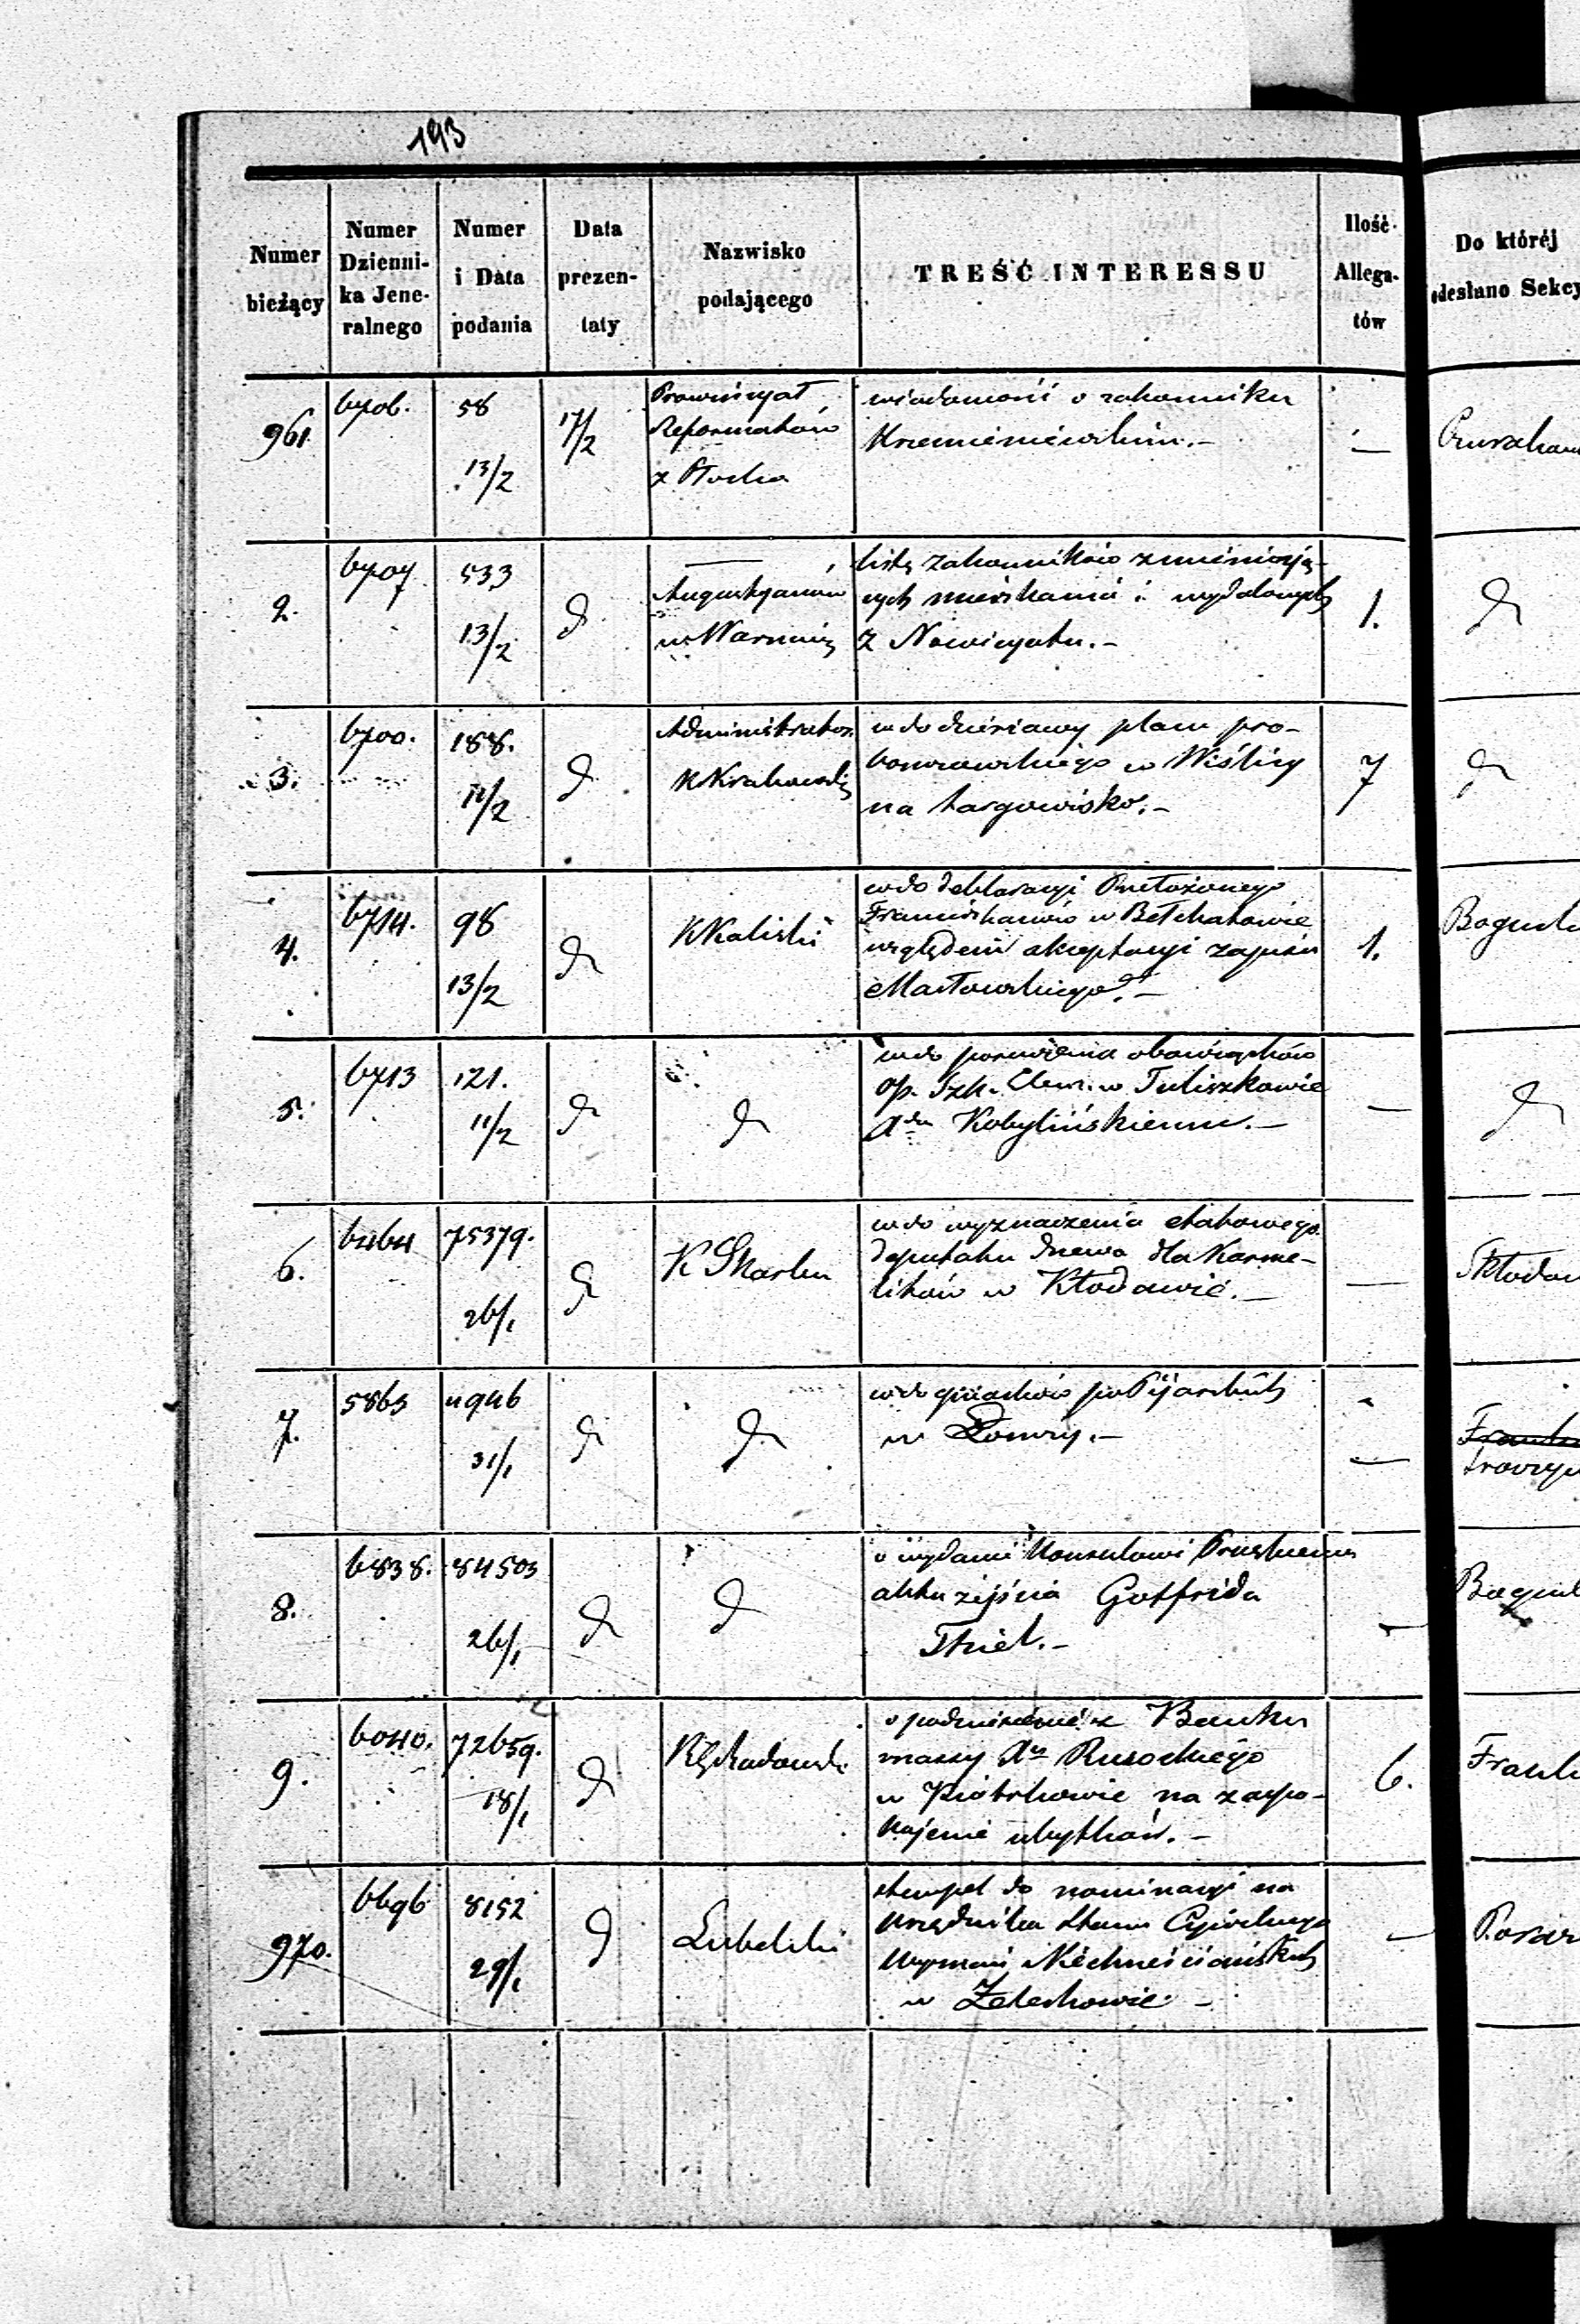 193
Numer bieżący
Numer Dzienni-ka Jene-ralnego
Numer i Data podania
Data prezen-taty
Nazwisko podającego
TREŚĆ INTERESSU
Ilość Allega-tów
Do któréj odesłano Sekcy
961. 6706. 58 13/2 17/2
Prowincyał
Reformatów
z Płocka
wiadomość o zakonniku
—
2. 6707. 533 13/2 d
—
Augustyanów
w Warszawie
listę zakonników zmieniają-
cych mieszkania i wydalonych
z Nowicyatu.-
1.
d
3. 6700. 188. 11/2 d
Administrator
KKrakowski
wdo dzierżawy placu pro-
boszczowskiego w Wiślicy
na targowisko.-
7
d
4. 6714. 98 13/2 d
KKaliski
wdo deklaracyi Przełożonego
Franciszkanów w Bełchatowie
względem akceptacyi zapisu
1.
5. 6713 121. 11/2 d
d
wdo poruczenia obowiązków
Op. Szk. Elem. w Tuliszkowie
Kobylińskiemu.-
—
d
6. 6464 75379. 26/1 d
K Skarbu
wdo wyznaczenia etatowego
deputatu drzewa dla Karme-
litów w Kłodawie.-
—
7. 5863 4946 31/1 d
d
wdo gmachów po Pijarskich
w Łomży.-
—
8. 6838. 84503 26/1 d
d
o wydanie Konsulowi Pruskiemu
aktu zejścia Gotfrida
Thiel.-
—
9. 6040. 72659. 18/1 d
o podniesienie z Banku
massy
w Piotrkowie na zaspo-
kojenie ubytków.-
6.
970. 6696 8152 29/1 d
Lubelski
stempel do nominacyi na
Urzędnika Stanu Cywilnego
Wyznań Niechrześciańskich
w Żelechowie -
—